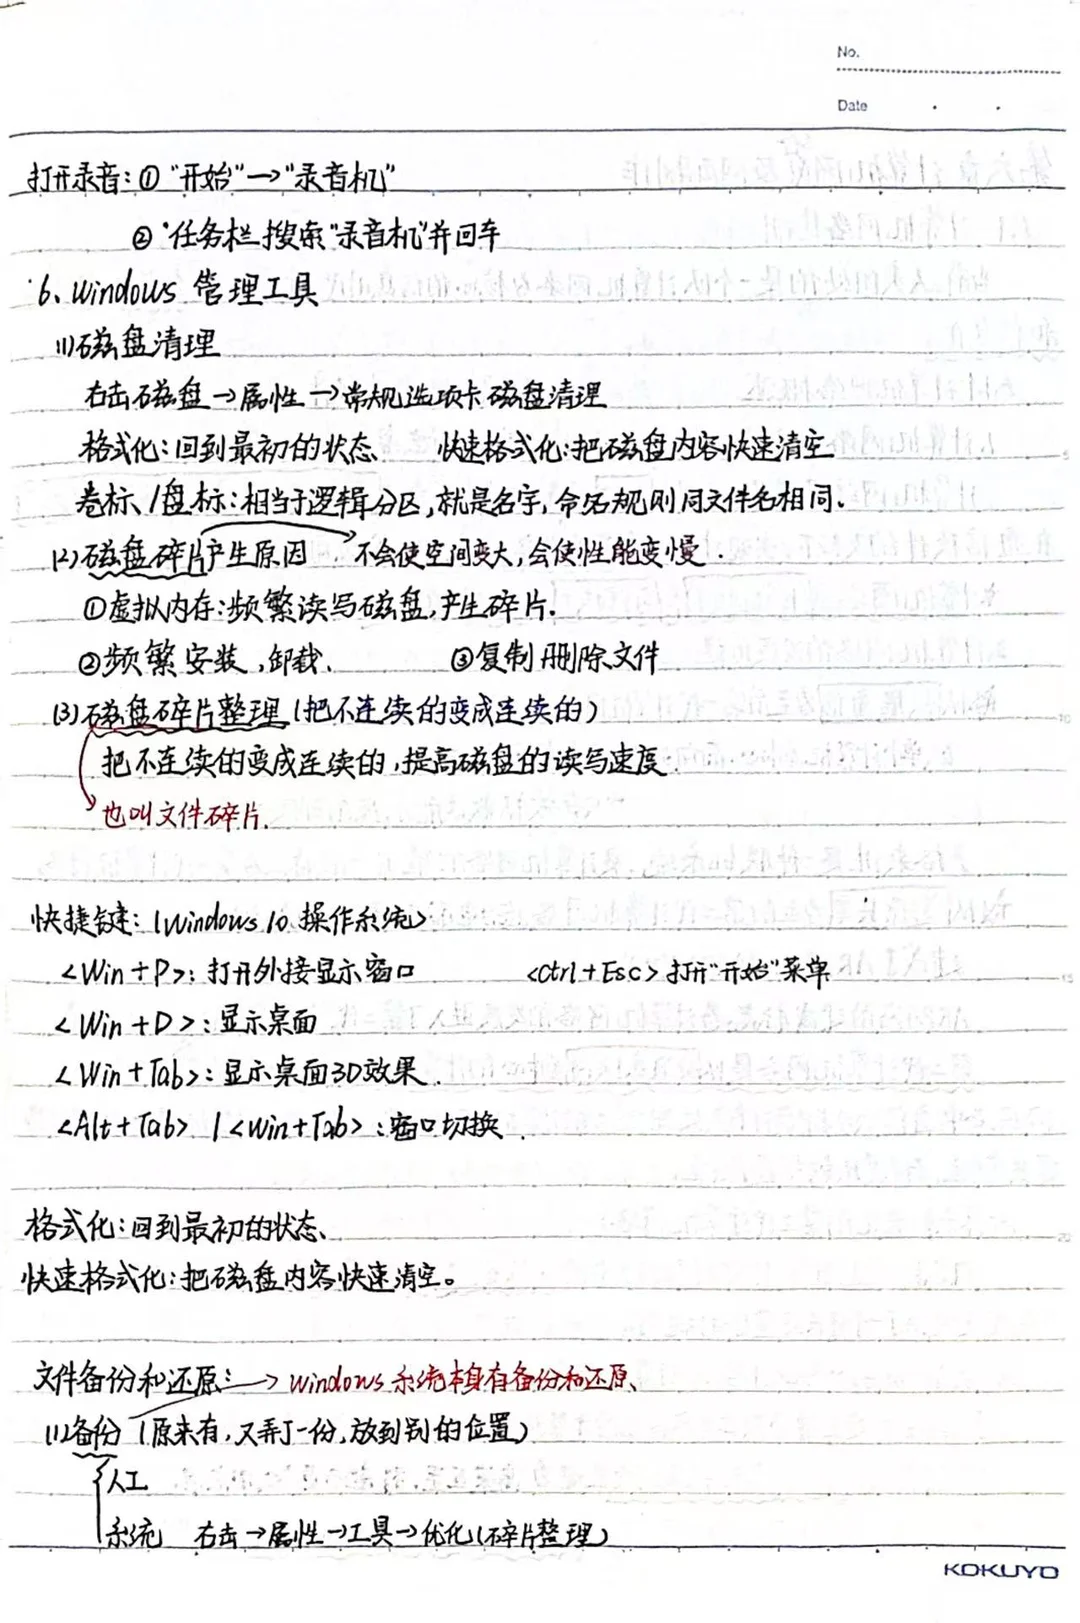 No.
Date
打开录音:① "开始"→"录音机"
② "任务栏搜索"录音机"并回车
6、Windows 管理工具
(1)磁盘清理
右击磁盘→属性→常规选项卡磁盘清理
格式化:回到最初的状态 快速格式化:把磁盘内容快速清空
卷标/盘标:相当于逻辑分区,就是名字,命名规则同文件名相同.
(2)磁盘碎片产生原因 不会使空间变大,会使性能变慢.
①虚拟内存:频繁读写磁盘,产生碎片.
②频繁安装,卸载. ③复制删除文件
(3)磁盘碎片整理(把不连续的变成连续的)
把不连续的变成连续的,提高磁盘的读写速度
也叫文件碎片.
快捷键:(Windows 10 操作系统)
<Win+P>:打开外接显示窗口 <Ctrl+Esc>打开"开始"菜单
<Win+D>:显示桌面
<Win+Tab>:显示桌面3D效果.
<Alt+Tab> / <Win+Tab>:窗口切换.
格式化:回到最初的状态、
快速格式化:把磁盘内容快速清空。
文件备份和还原:→ Windows 系统本身有备份和还原、
(1)备份(原来有,又弄了一份,放到别的位置)
人工
系统 右击→属性→工具→优化(碎片整理)
KOKUYO